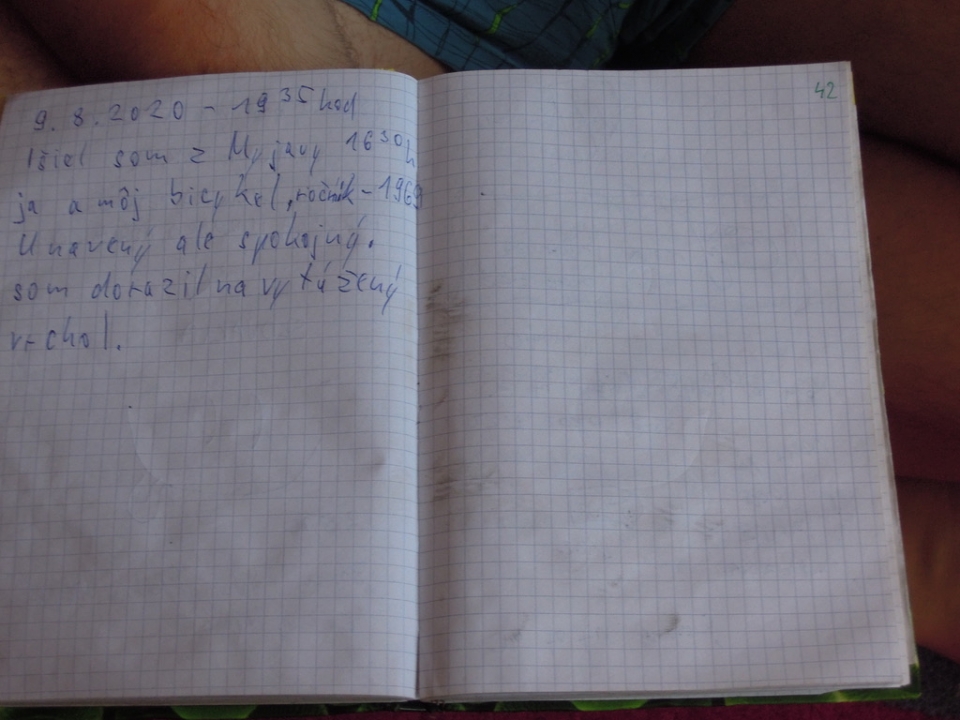 9.8.2020 - 19 35 hod
Išiel som z Myjavy 16 30 h
ja a môj bicykel, ročník - 1969
Unavený ale spokojný.
som dorazil na vytúžený
vrchol.
42